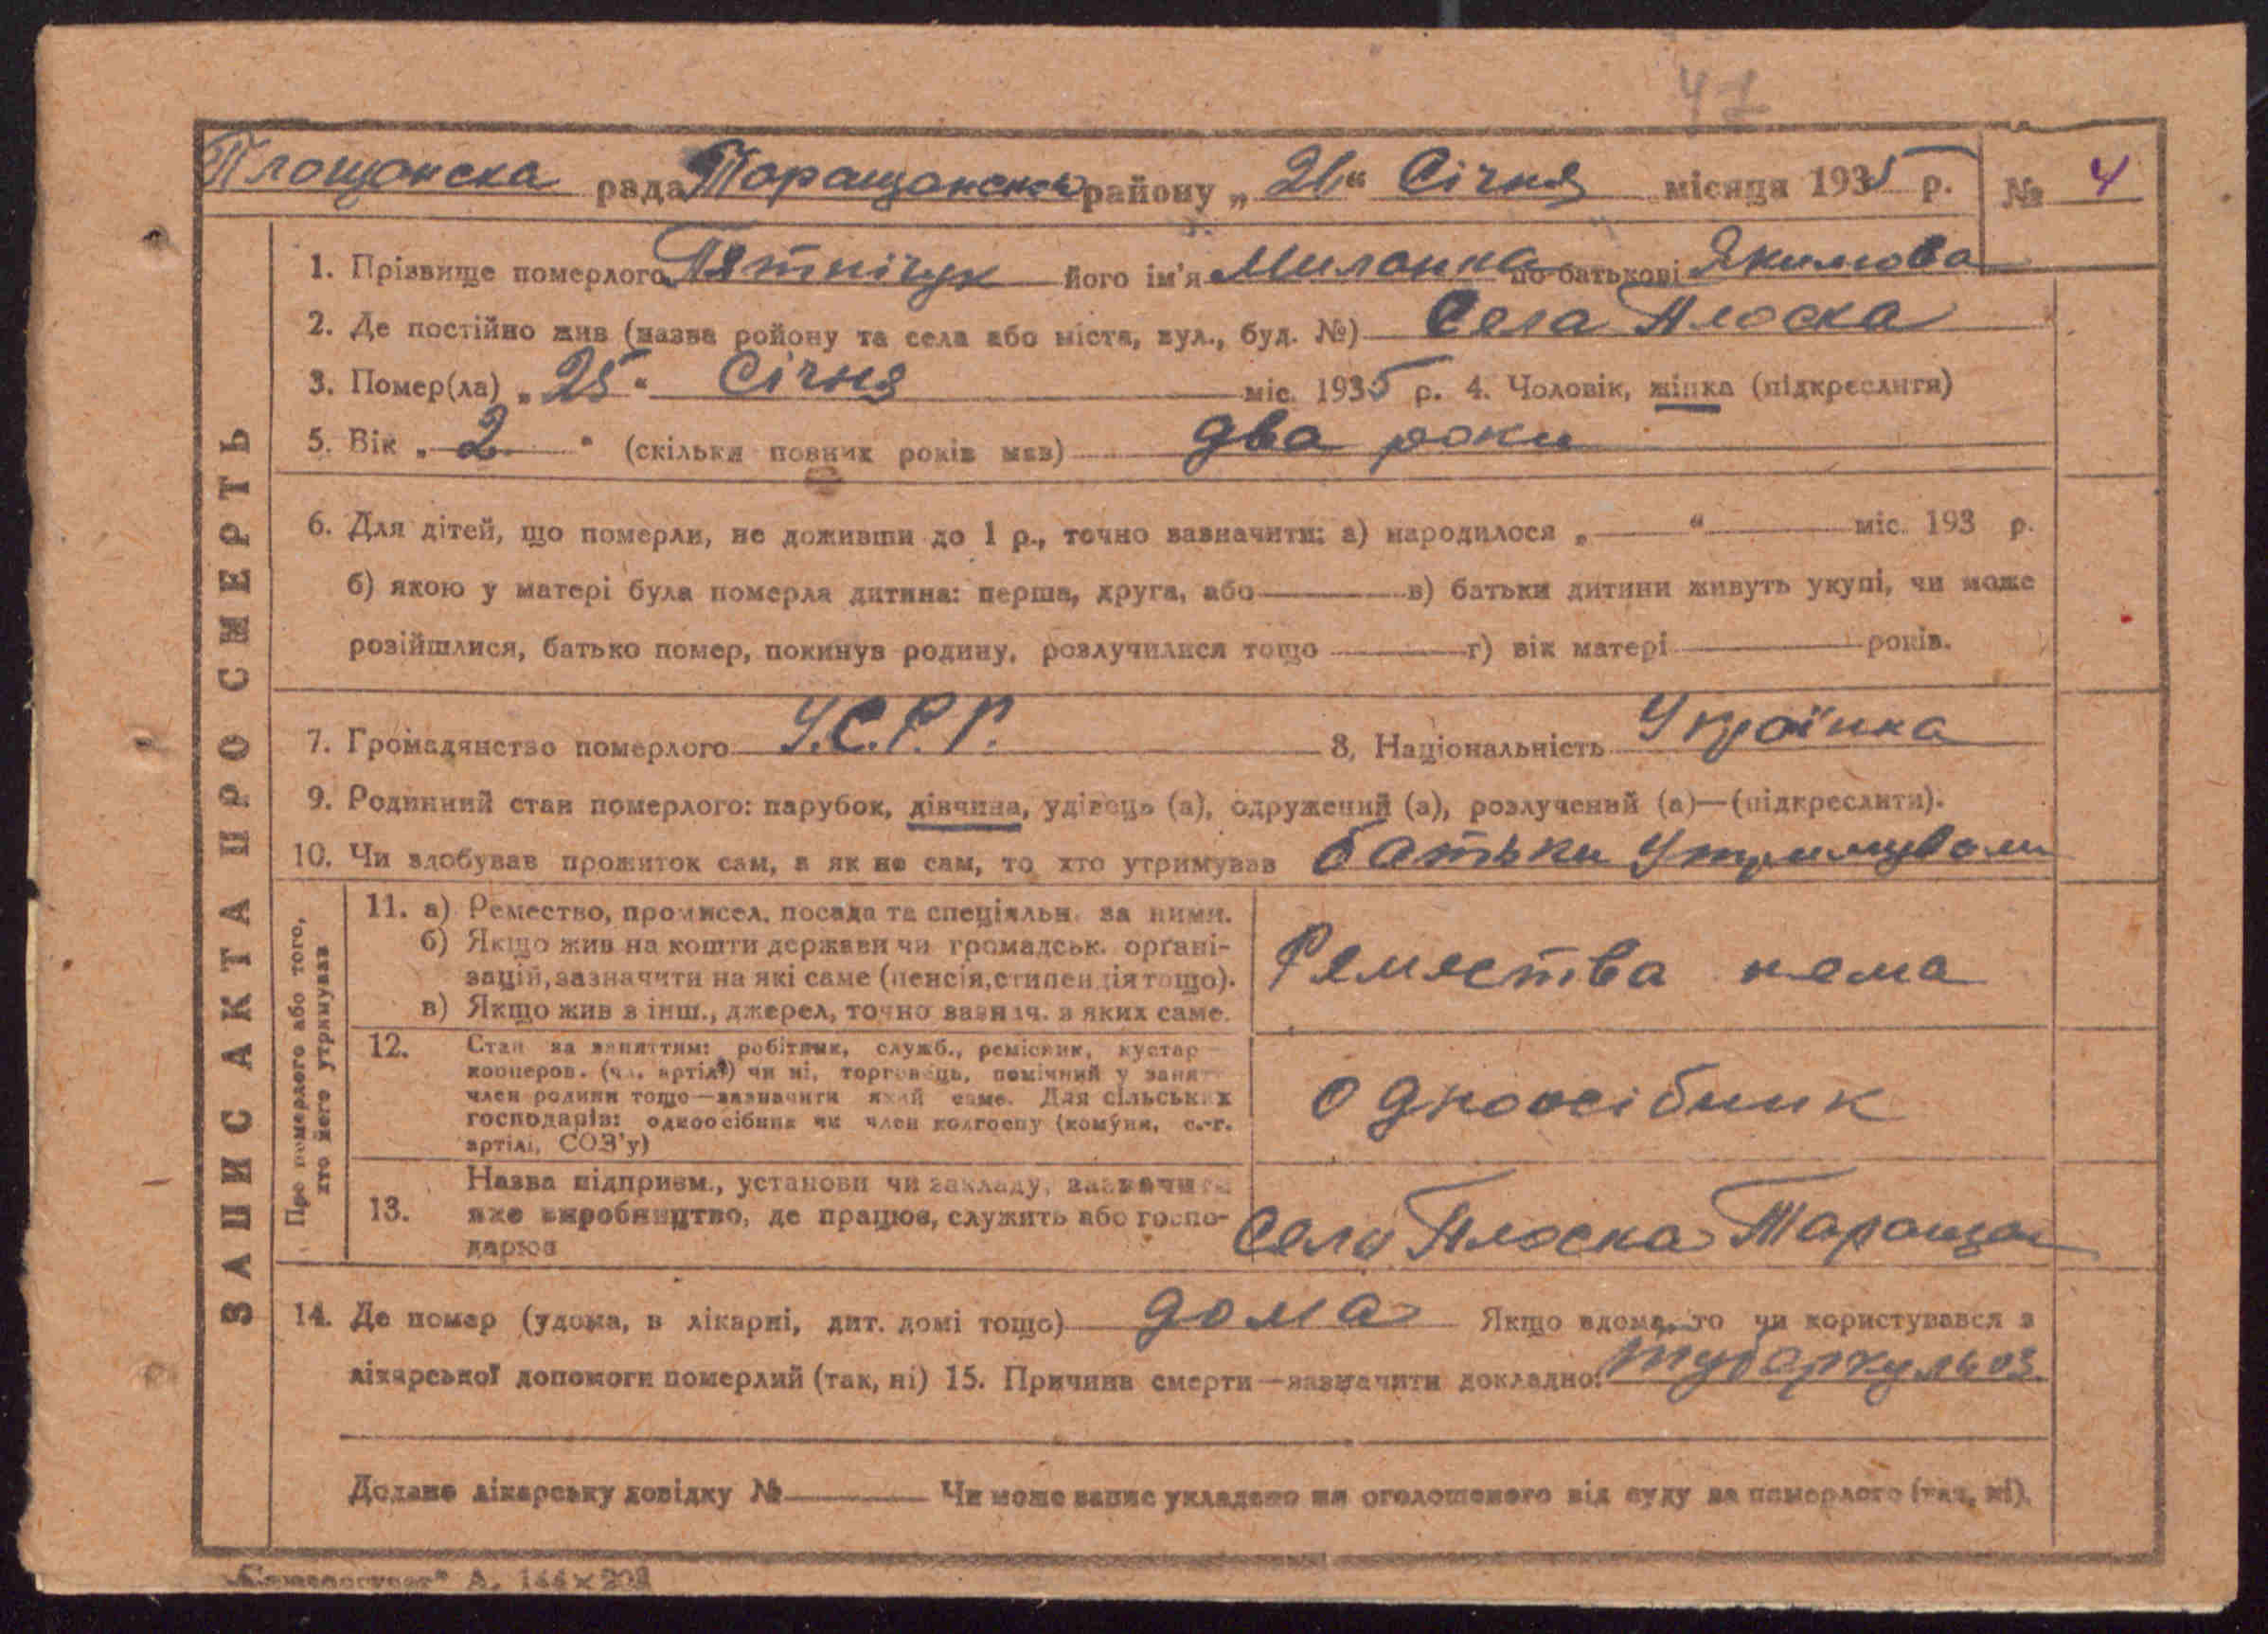 47
Площанска рада Таращанського району „ 26 “ Січня місяця 1935 р. № 4
ЗАПИС АКТА ПРО СМЕРТЬ
1. Прізвище померлого Пятнічук його ім'я Миланка по-батькові Якимова
2. Де постійно жив (назва ройону та села або міста, вул., буд. №) Села Плоска
3. Помер(ла) „ 25 “ Січня міс. 1935 р. 4. Чоловік, жінка (підкреслити)
5. Вік „ 2 “ (скільки повних років мав) два роки
6. Для дітей, що померли, не доживши до 1 р., точно зазначити: а) народилося „ “ міс. 193 р.
б) якою у матері була померла дитина: перша, друга, або в) батьки дитини живуть укупі, чи може
розійшлися, батько помер, покинув родину, розлучилися тощо г) вік матері років.
7. Громадянство померлого У.С.Р.Р. 8, Національність Україинка
9. Родинний стан померлого: парубок, дівчина, удівець (а), одружений (а), розлучений (а)—(підкреслити).
10. Чи здобував прожиток сам, а як не сам, то хто утримував батьки утримували
Про померлого або того,
хто його утримував
11. а) Ремество, промисел, посада та спеціяльн. за ними.
б) Якщо жив на кошти держави чи громадськ. органі-
зацій, зазначити на які саме (пенсія, стипендія тощо).
в) Якщо жив з інш., джерел, точно зазнач. з яких саме.
Ремества нема
12. Стан за заняттям: робітник, служб., ремісник, кустар—
кооперов. (чл. артілі) чи ні, торговець, помічний у занят
член родини тощо—зазначити який саме. Для сільських
господарів: одноосібник чи член колгоспу (комуни, с.-г.
артілі, СОЗ'у)
одноосібник
13. Назва підприєм., установи чи закладу, зазначити
яке виробництво, де працює, служить або госпо-
дарює
Село Плоска Таращан
14. Де помер (удома, в лікарні, дит. домі тощо) дома Якщо вдома, то чи користувався з
лікарської допомоги померлий (так, ні) 15. Причина смерти—зазначити докладно: тубаркульоз.
Додано лікарську довідку № Чи може запис укладено на оголошеного від суду за померлого (так, ні).
А. 144×203